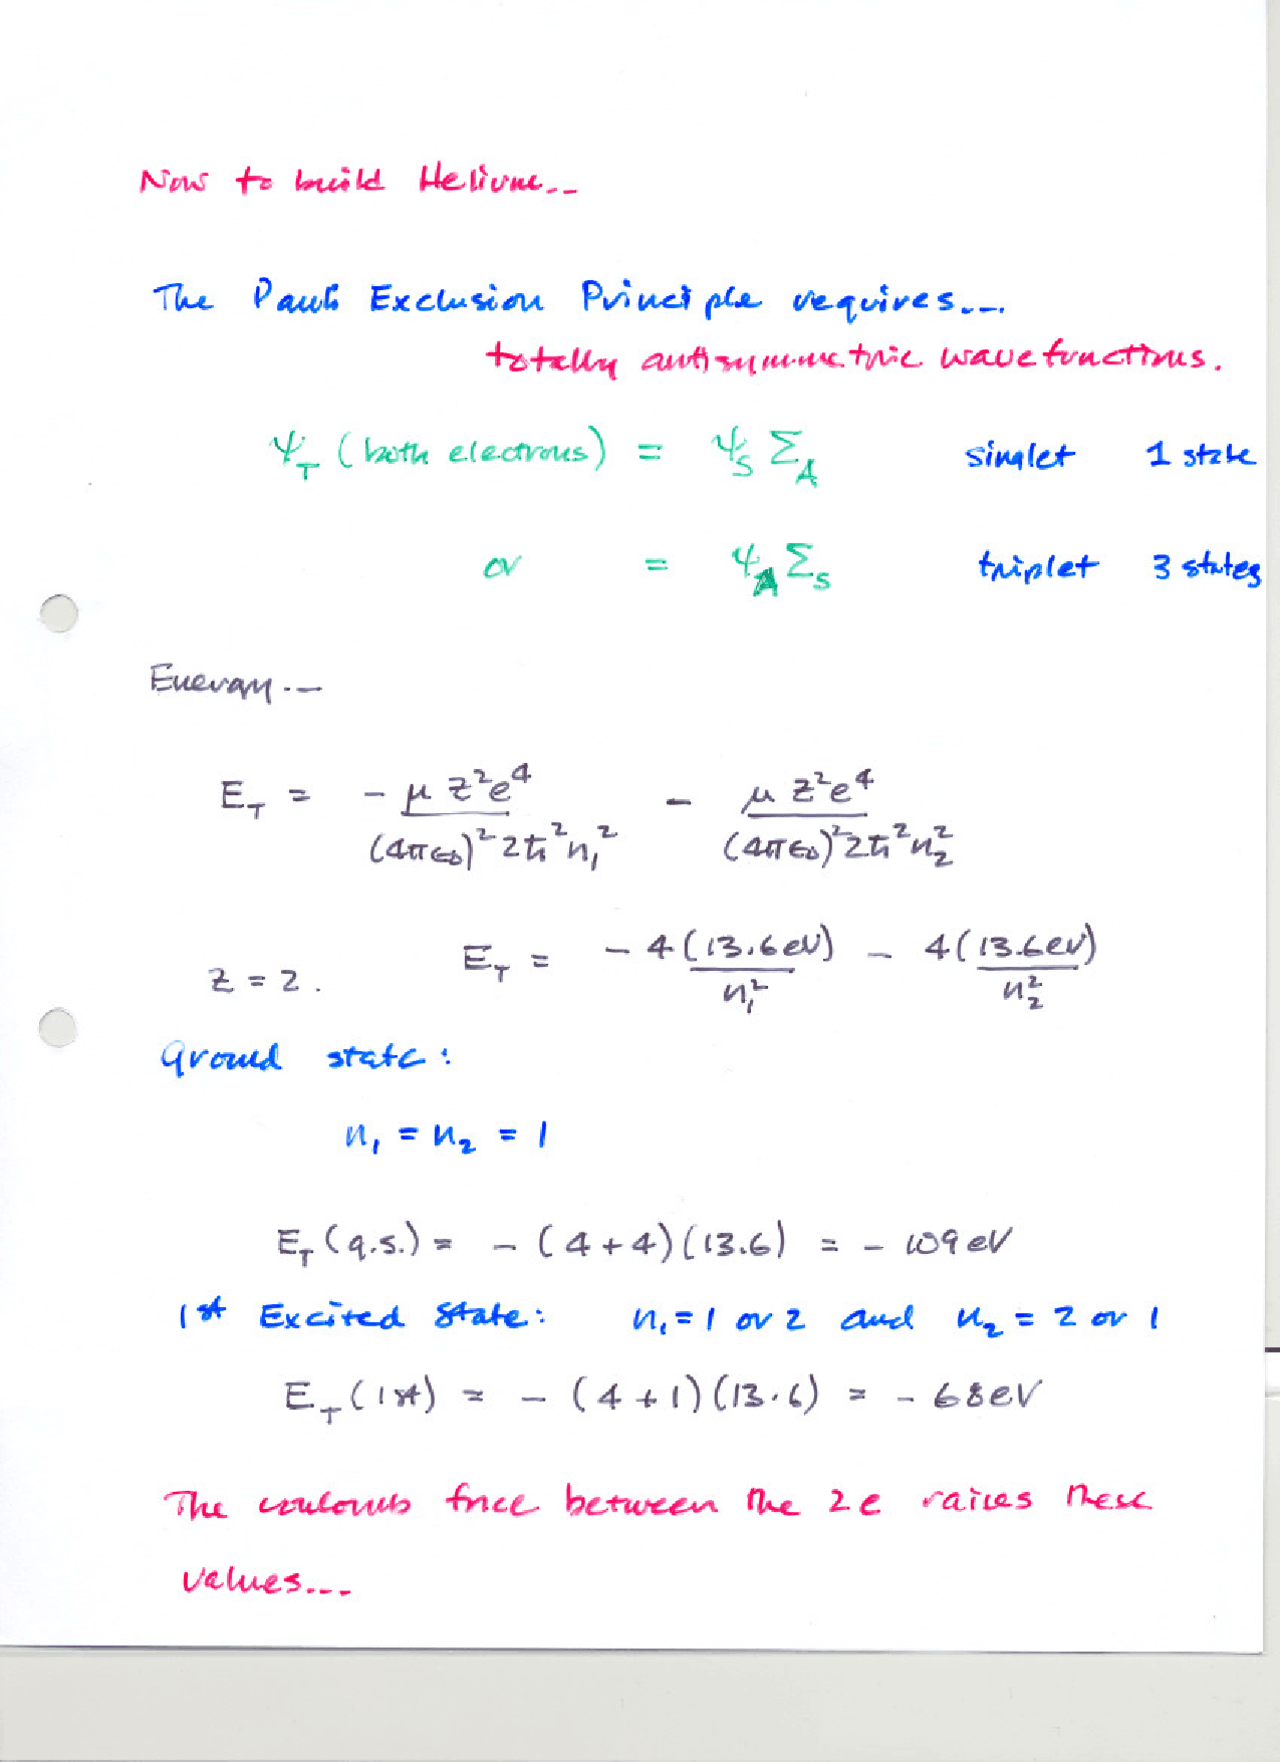 Now to build Helium...
The Pauli Exclusion Principle requires....
totally antisymmetric wavefunctions.
Ψ_T (both electrons) = Ψ_S Σ_A singlet 1 state
or = Ψ_A Σ_S triplet 3 states
Energy...
E_T = - μ Z²e⁴ / (4πε₀)² 2ħ² n₁² - μ Z²e⁴ / (4πε₀)² 2ħ² n₂²
Z = 2. E_T = - 4(13.6eV) / n₁² - 4(13.6eV) / n₂²
Ground state:
n₁ = n₂ = 1
E_T (g.s.) = - (4+4)(13.6) = - 109 eV
1st Excited State: n₁ = 1 or 2 and n₂ = 2 or 1
E_T (1st) = - (4+1)(13.6) = - 68 eV
The coulomb force between the 2e raises these
values....